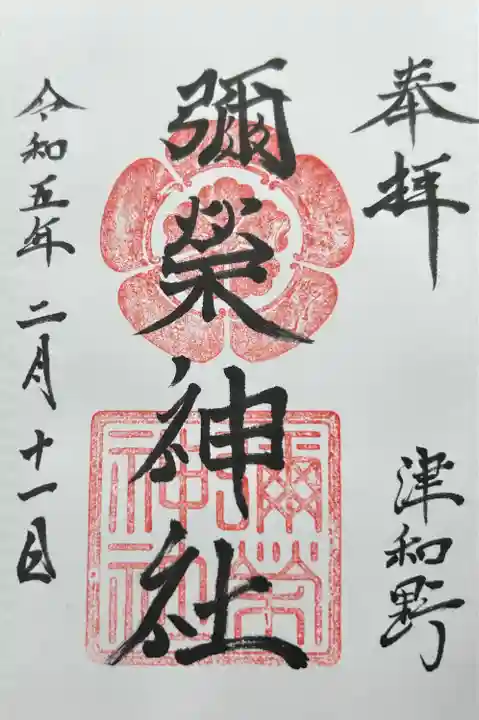 奉拝
津和野
彌榮神社
彌榮神社
令和五年二月十一日